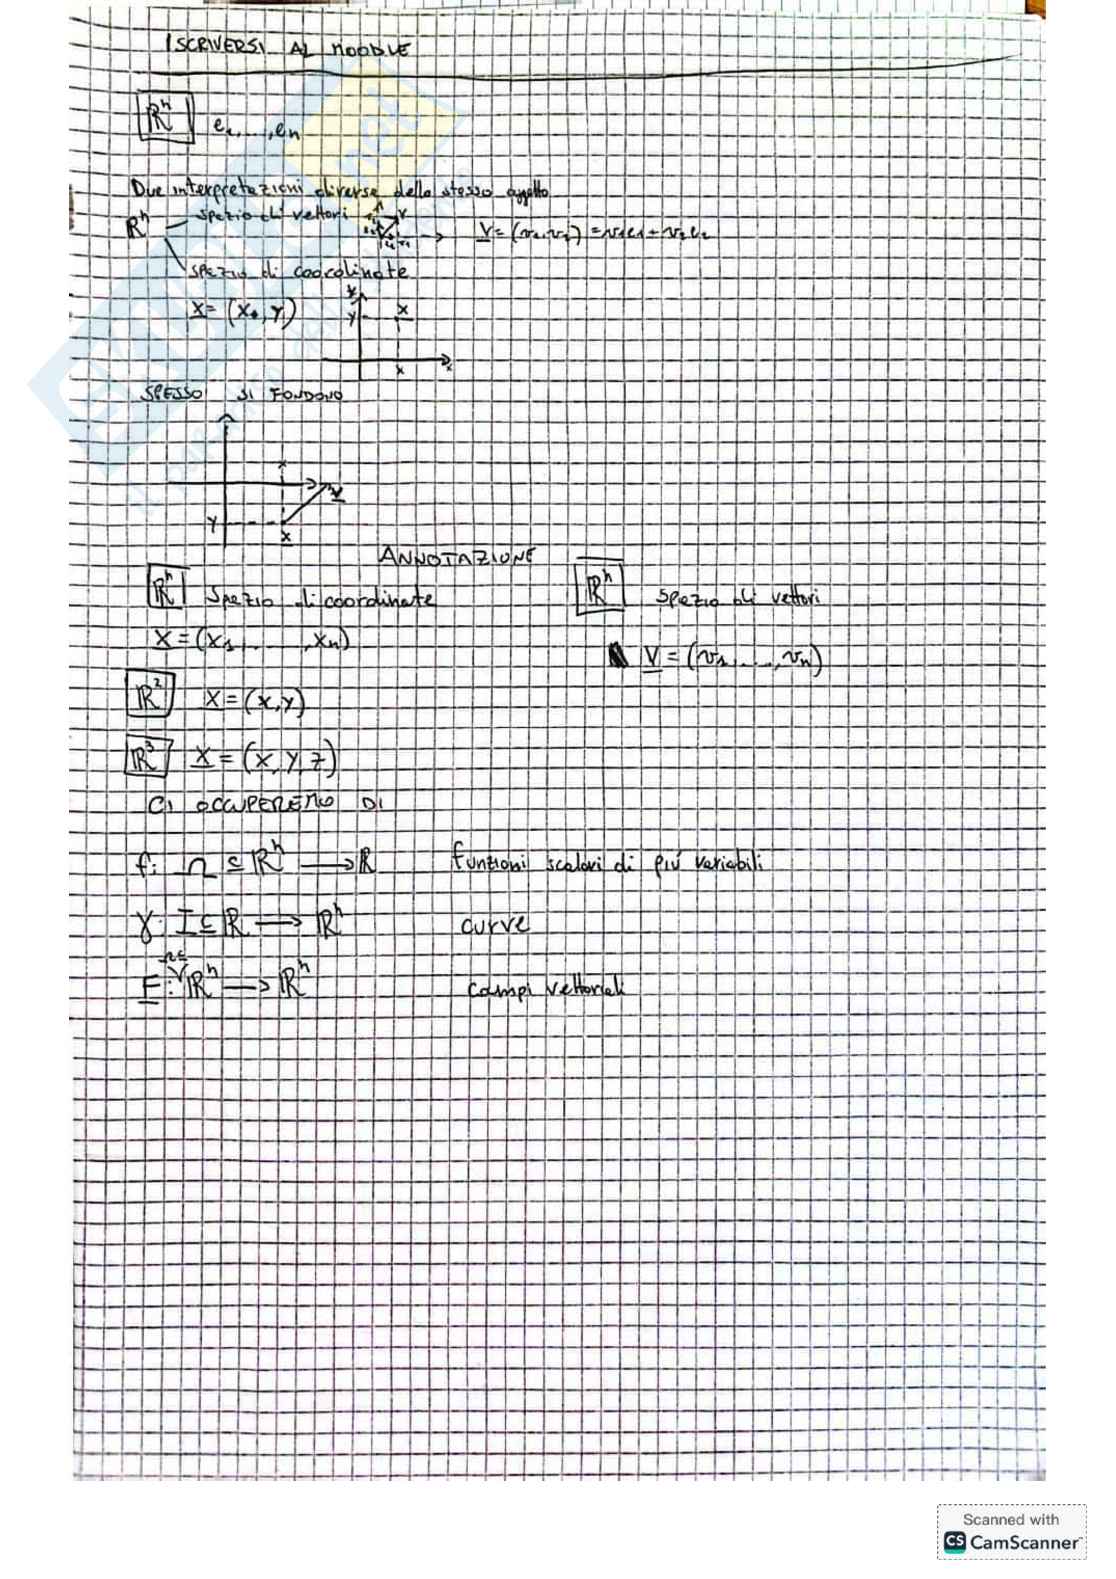 ISCRIVERSI AL MOODLE
ℝⁿ e₁,...,eₙ
Due interpretazioni diverse dello stesso oggetto
ℝⁿ spazio di vettori V = (v₁,v₂) = v₁e₁ + v₂e₂
spazio di coordinate
X = (x, y)
y x
x x
SPESSO SI FONDONO
x
v
y
x
ANNOTAZIONE
ℝⁿ spazio di coordinate
ℝⁿ spazio di vettori
X = (x₁,...,xₙ)
V = (v₁,...,vₙ)
ℝ² X = (x,y)
ℝ³ X = (x,y,z)
CI OCCUPEREMO DI
f: Ω ⊆ ℝⁿ → ℝ funzioni scalari di più variabili
γ: I ⊆ ℝ → ℝⁿ curve
F: Ω ⊆ ℝⁿ → ℝⁿ campi vettoriali
Scanned with
CS CamScanner